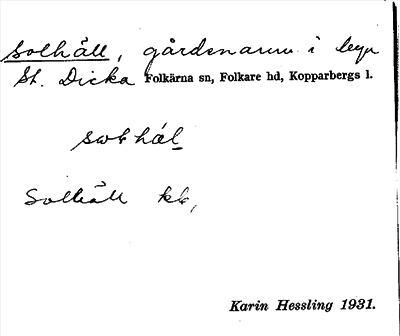 Solhäll, gårdsnamn i byn
St. Dicka Folkärna sn, Folkare hd, Kopparbergs l.
Solhäll kb,
Karin Hessling 1931.